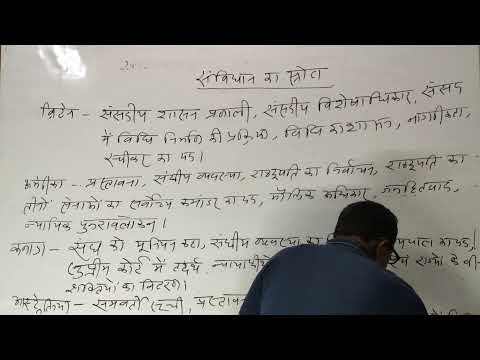 संविधान का स्रोत
ब्रिटेन - संसदीय शासन प्रणाली, संसदीय विशेषाधिकार, संसद
में विधि निर्माण की प्रक्रिया, विधि का शासन, नागरिकता,
स्पीकर का पद।
अमेरिका - प्रस्तावना, संघीय व्यवस्था, राष्ट्रपति का निर्वाचन, राष्ट्रपति का
तीनों सेनाओं का सर्वोच्च कमांडर का पद, मौलिक अधिकार, जनहितवाद,
न्यायिक पुनरावलोकन।
कनाडा - संघ को यूनियन कहा, संघीय व्यवस्था का राज्यपाल का पद,
सुप्रीम कोर्ट में तदर्थ न्यायाधीशों एवं राज्यों के बी-
शक्तियों का वितरण।
आस्ट्रेलिया - समवर्ती सूची, प्रस्तावना